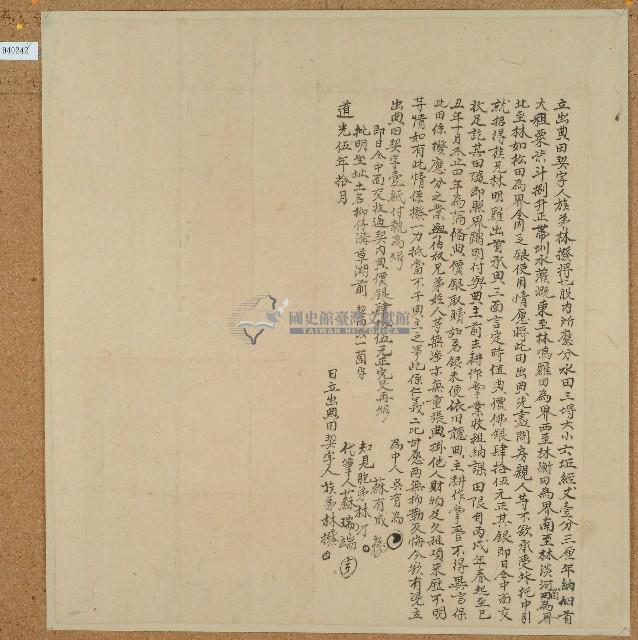 立出典田契字人族弟林撥得七股內所應分水田三坵大小六坵經丈壹分三厘年納租首
大租粟柒斗捌升正帶圳水灌溉東至林鳴羅田為界西至林衡田為界南至林淡河田為界
北至林如松田為界今因乏銀使用情愿將此田出典先盡問房親人等不欲承受外托中引
就招得族兄林明羅出首承典三面言定時值典價佛銀肆拾伍元正其銀即日仝中面交
收足訖其田隨即照界踏明付與典主前去耕作掌業收租納課田限自丙戌年春起至己
丑年十月冬止四年為滿備典價銀取贖如若銀未便依旧聽典主耕作掌管不得異言保
此田係撥應分之業與伯叔兄弟姪人等無涉亦無重張典掛他人財物及欠租項來歷不明
等情如有此情係撥一力抵當不干典主之事此係仁義二比甘愿兩無抑勒反悔今欲有憑立
出典田契字壹紙付執為炤
即日仝中面交收過契內典價銀肆拾伍元正完足再炤
批明坐址土名柳仔溝草湖前
道光伍年拾月 日立出典田契字人族弟林撥
為中人 吳有為
蘇有成
知見胞弟林
代筆人蘇瑞端
940242
國史館臺灣文獻館
TAIWAN HISTORICA